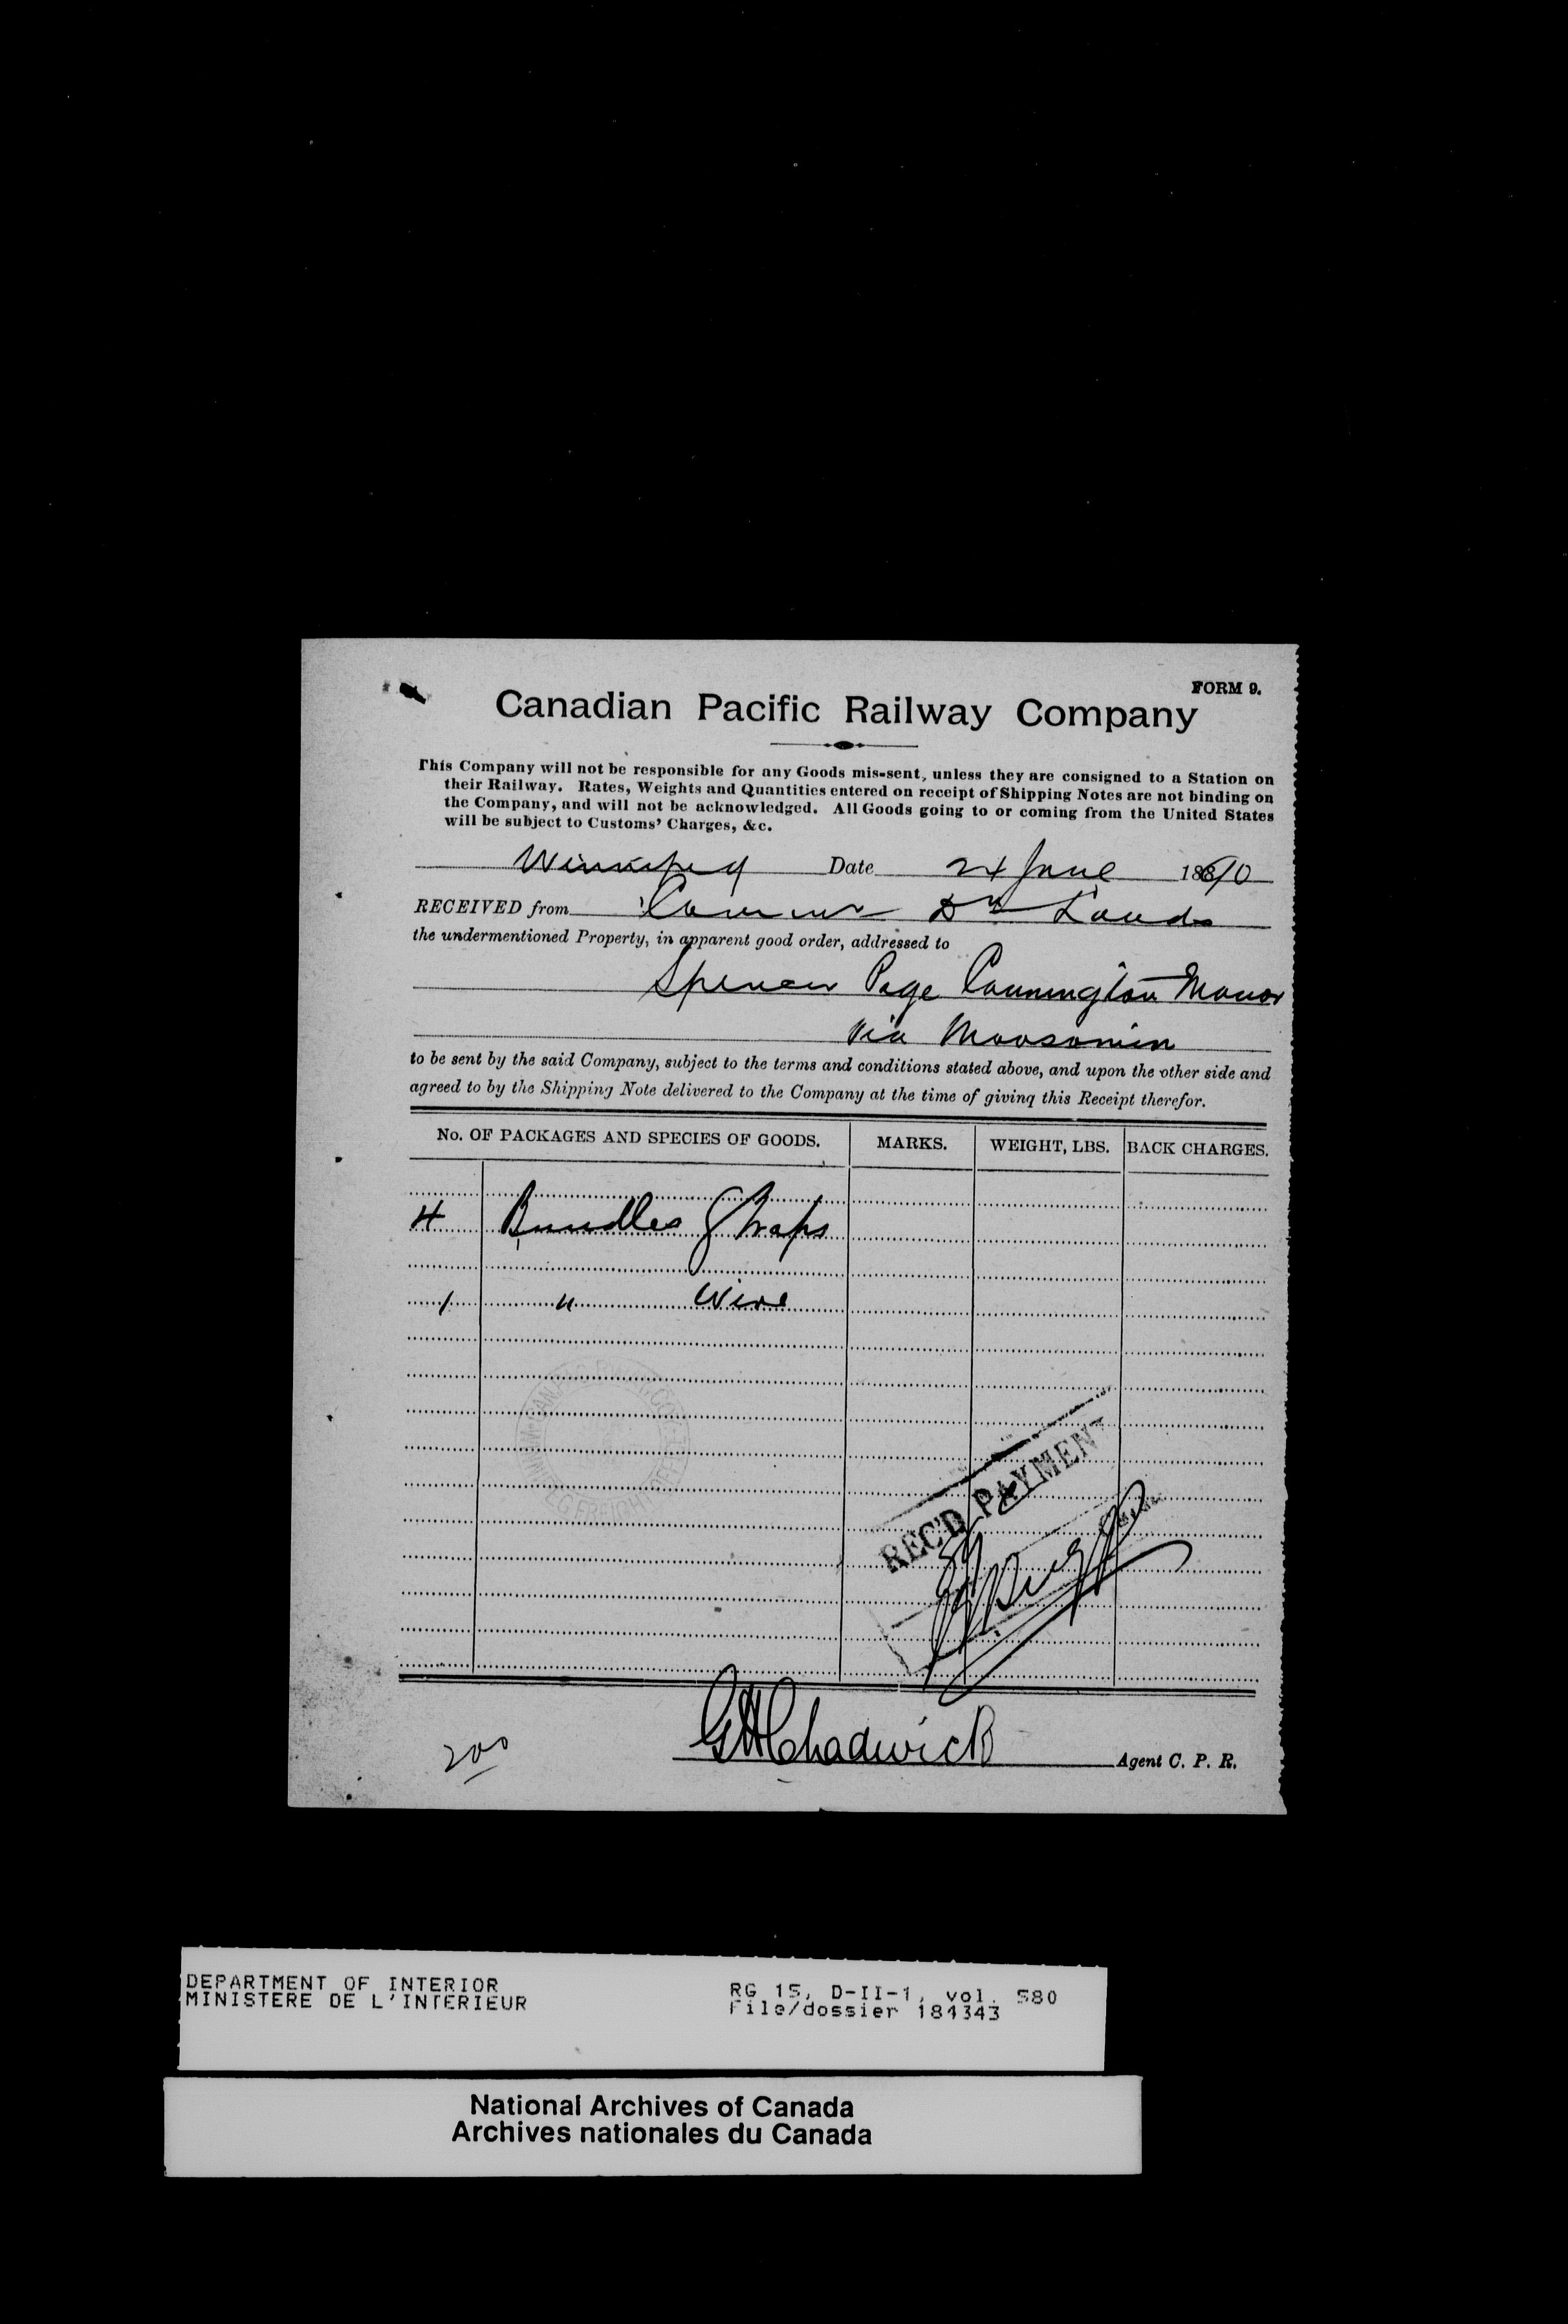 FORM 9.
Canadian Pacific Railway Company
This Company will not be responsible for any Goods mis-sent, unless they are consigned to a Station on
their Railway. Rates, Weights and Quantities entered on receipt of Shipping Notes are not binding on
the Company, and will not be acknowledged. All Goods going to or coming from the United States
will be subject to Customs' Charges, &c.
Winnipeg Date 24 June 1890
RECEIVED from Commr Dn Lands
the undermentioned Property, in apparent good order, addressed to
Spencer Page Cannington Manor
Via Moosomin
to be sent by the said Company, subject to the terms and conditions stated above, and upon the other side and
agreed to by the Shipping Note delivered to the Company at the time of giving this Receipt therefor.
No. OF PACKAGES AND SPECIES OF GOODS. MARKS. WEIGHT, LBS. BACK CHARGES.
4 Bundles
1 " Wire
REC'D PAYMENT
GH Chadwick Agent C. P. R.
200
DEPARTMENT OF INTERIOR
MINISTERE DE L'INTERIEUR
RG 15, D-II-1, vol. 580
File/dossier 184343
National Archives of Canada
Archives nationales du Canada